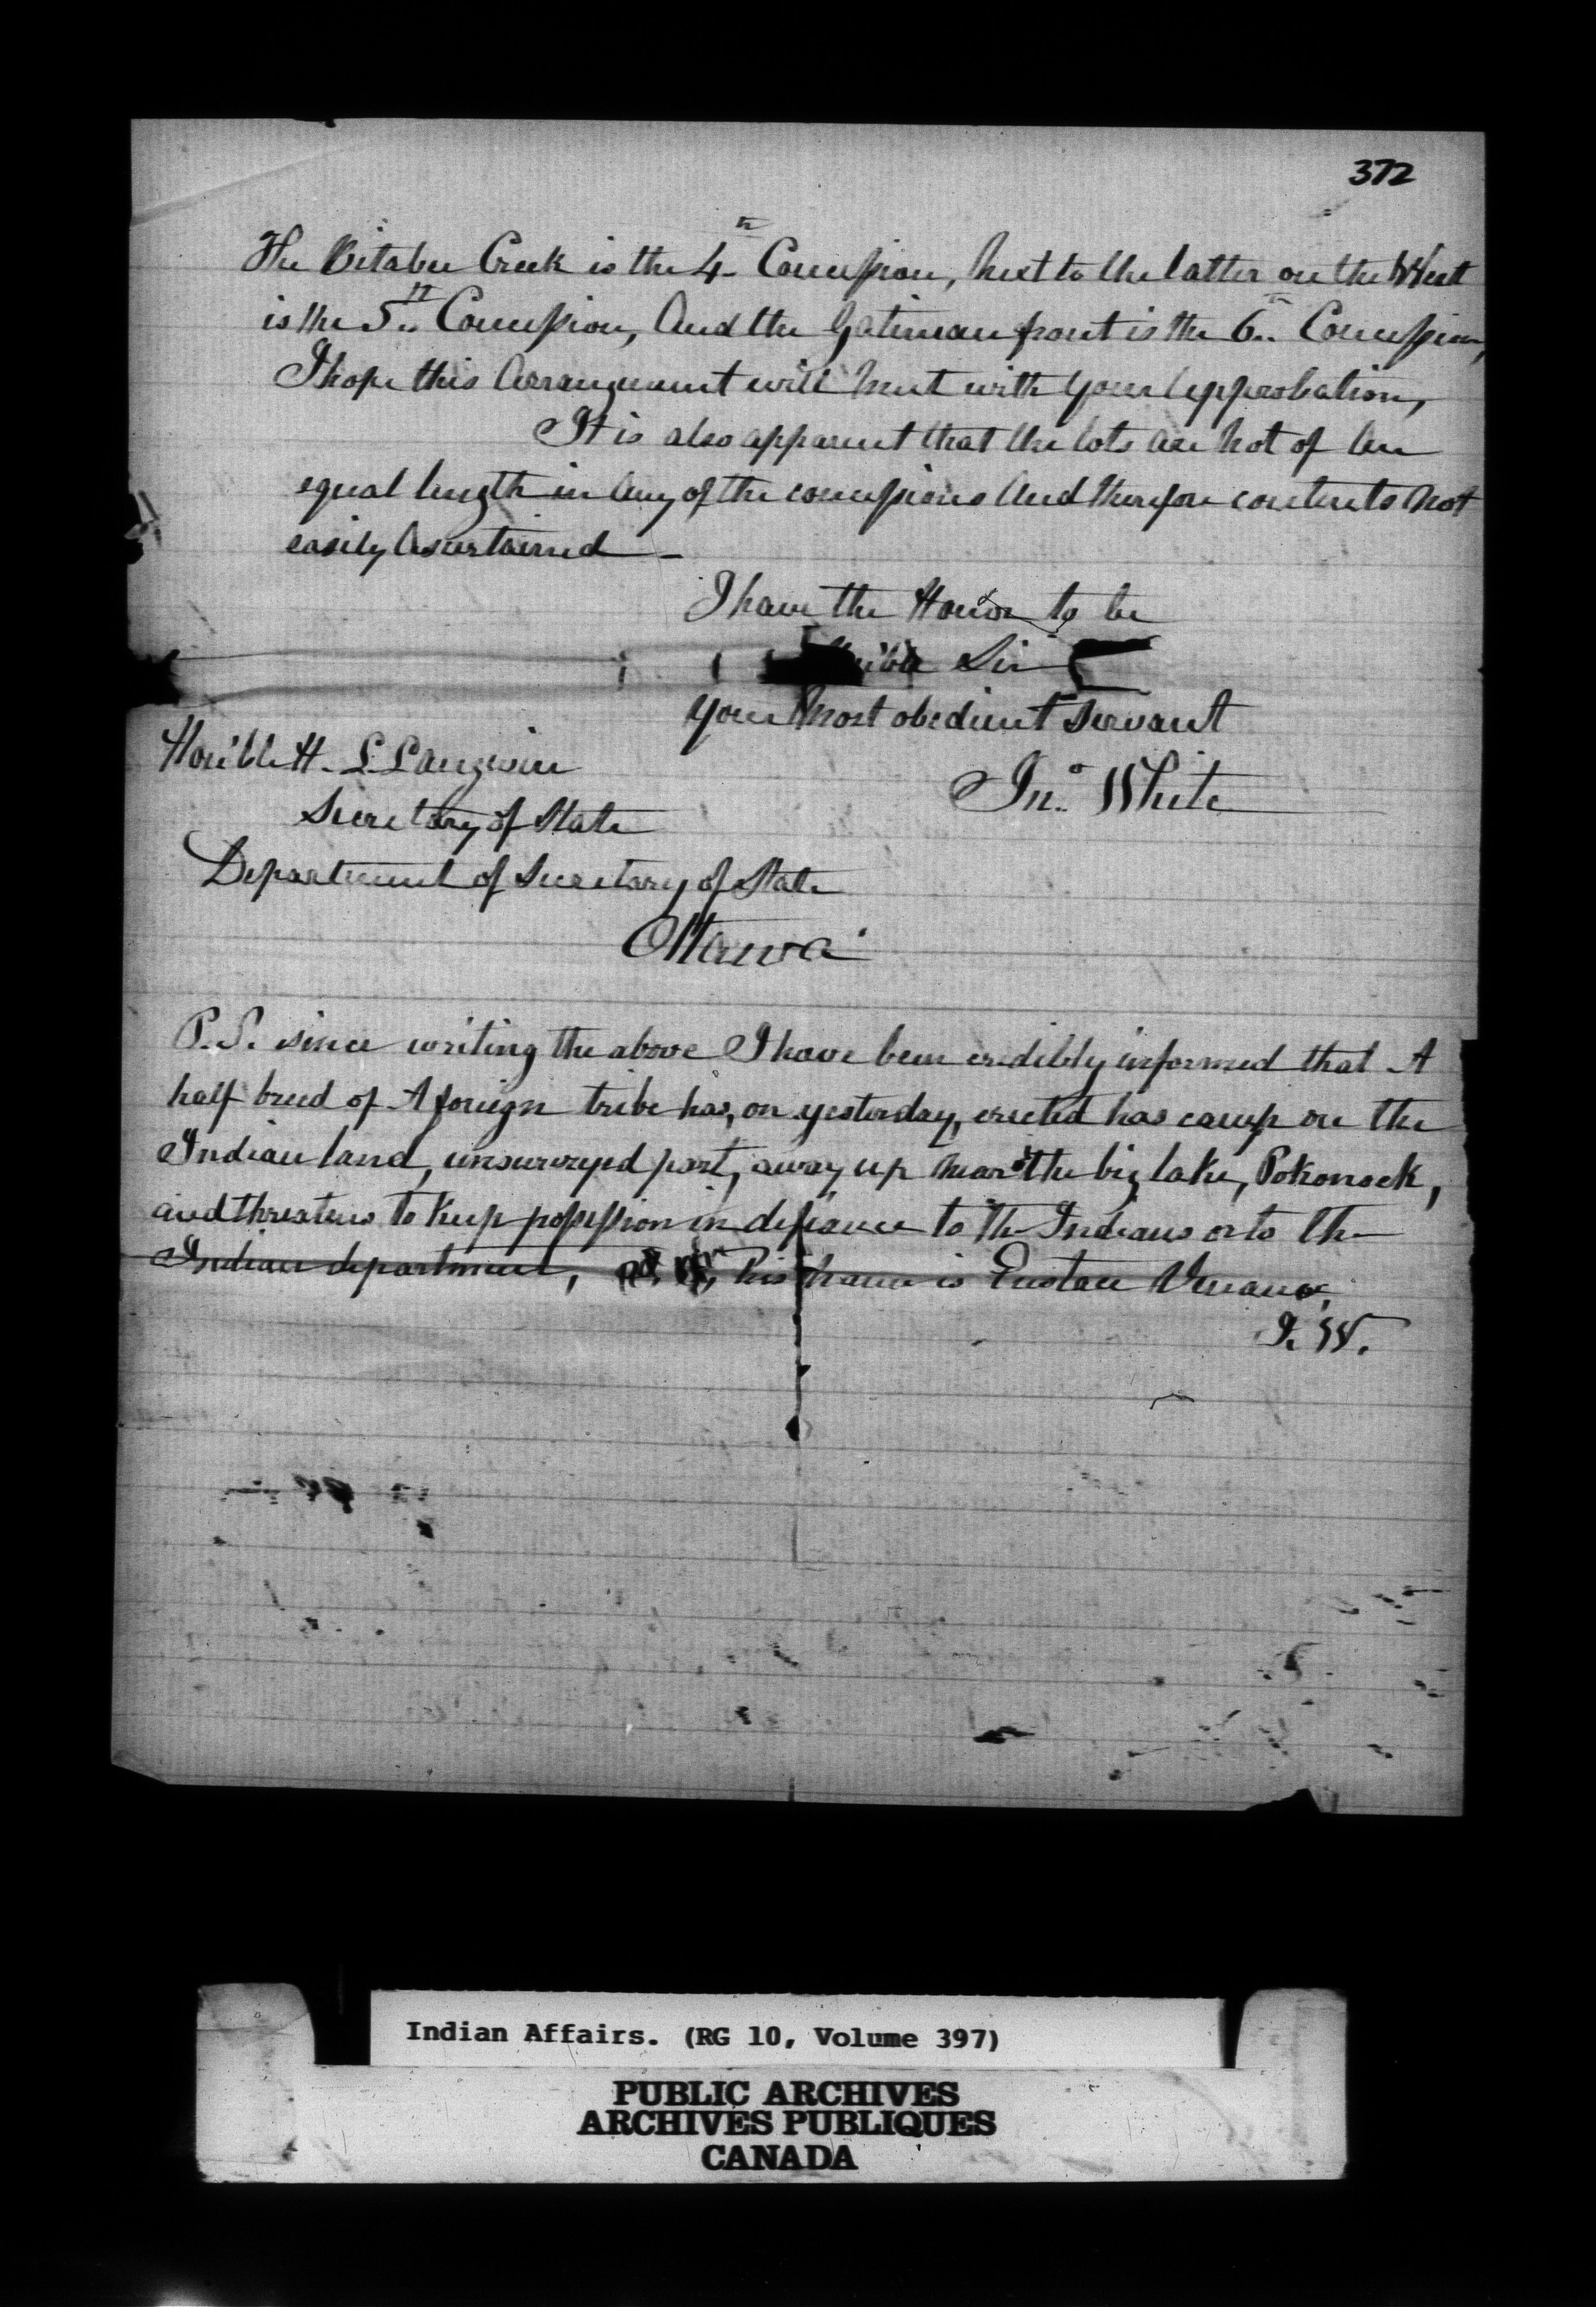 372
The Bitabee Creek is the 4th Concession, Next to the latter on the West
is the 5th Concession, And the Gatineau front is the 6th Concession,
I hope this Arrangement will meet with your Approbation,
It is also apparent that the lots are Not of An
equal length in Any of the concessions And therefore contents Not
easily Ascertained
I have the Honor to be
Sir
your Most obedient Servant
Jno White
Hon'ble H. L. Langevin
Secretary of State
Department of Secretary of State
Ottawa
P.S. since writing the above I have been credibly informed that A
half breed of A foreign tribe has, on yesterday, erected has camp on the
Indian land, unsurveyed part, away up near the big lake, Pokonock,
and threatens to keep possession in defiance to the Indians or to the
Indian department, his name is Eustace
J. W.
Indian Affairs. (RG 10, Volume 397)
PUBLIC ARCHIVES
ARCHIVES PUBLIQUES
CANADA